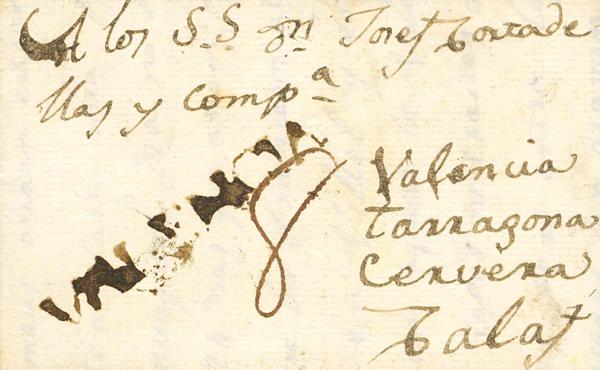 A los S.S. dn Josef Tortade
llas y compa
8
Valencia
Tarragona
Cervera
Talaf